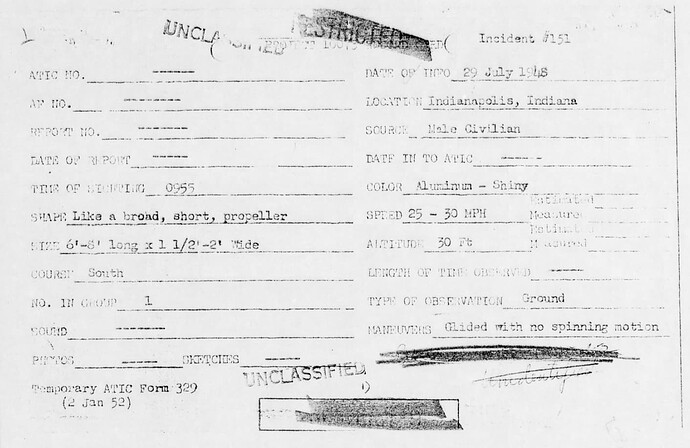 UNCLASSIFIED
RESTRICTED
Incident #151
ATIC NO. -----
DATE OF INFO 29 July 1948
AF NO. -------
LOCATION Indianapolis, Indiana
REPORT NO. -----
SOURCE Male Civilian
DATE OF REPORT -----
DATE IN TO ATIC -----
TIME OF SIGHTING 0955
COLOR Aluminum - Shiny
SHAPE Like a broad, short, propeller
SPEED 25 - 30 MPH
Estimated
Measured
SIZE 6'-8' long x 1 1/2'-2' Wide
ALTITUDE 30 Ft
Estimated
Measured
COURSE South
LENGTH OF TIME OBSERVED ----
NO. IN GROUP 1
TYPE OF OBSERVATION Ground
SOUND ------
MANEUVERS Glided with no spinning motion
PHOTOS ---- SKETCHES ----
UNCLASSIFIED
Temporary ATIC Form 329
(2 Jan 52)